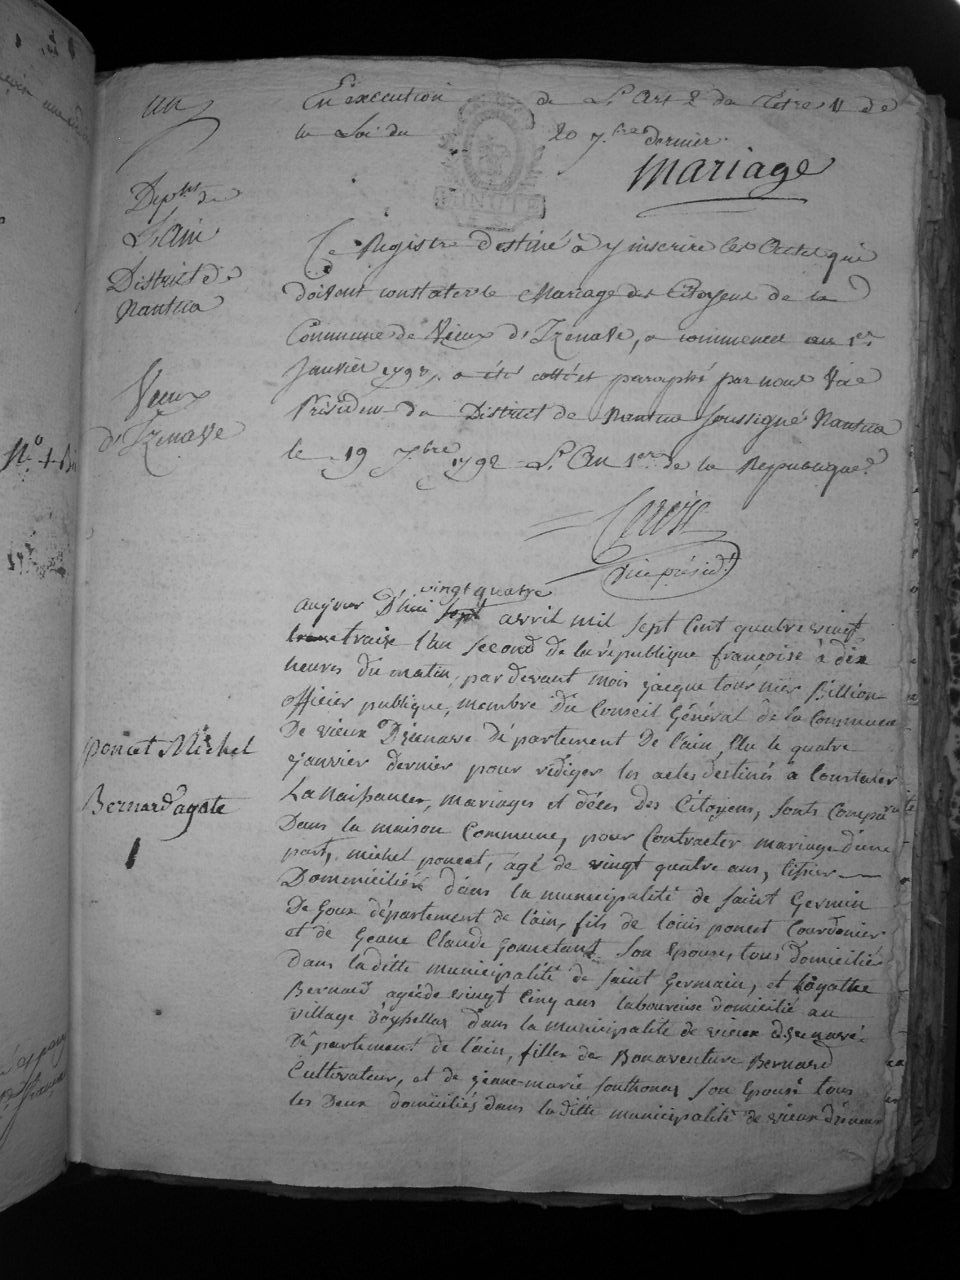 un
En execution de L'Art 2 du Titre II de
la Loi du 20 7.bre dernier.
Mariage
Dep.ts de
L'Ain
District de
Nantua
Vieux
d'Izenave
Ce Registre destiné à y inscrire les Actes qui
doivent constater le Mariage des Citoyens de la
Commune de Vieux d'Izenave, a commencer au 1.er
Janvier 1793, a été cotté et paraphé par nous Vice
Président du District de Nantua soussigné Nantua
le 19 X.bre 1792 L'An 1.er de la Republique.
vice présid.t
vingt quatre
aujour d'hui sept avril mil sept Cent quatre vingt
traise l'an second de la république françoise à dix
heures du matin, par devant moi jacque tournier billion
officier publique, membre du Conseil Général de la Commune
De vieux Dizenave département De l'ain, Elu le quatre
janvier dernier pour rediger les actes destinés à Constater
La Naissances, mariages et décès des Citoyens, sonts Comparu
Dans la maison Commune, pour Contracter mariage d'une
part, michel poncet, agé de vingt quatre ans, tissier
Domicilié dans la municipalité de saint Germain
De Joux département de l'ain, fils de louis poncet Courdonier
et de Geane Claude gonnetant son Epouse tous domicilié
dans laditte municipalité de saint Germain, et Lagathe
Bernard agée de vingt Cinq ans laboureuse domicilié au
village d'oysellaz dans la municipalité de vieux dizenave
Département de l'ain, fille de Bonaventure Bernard
Cultivateur, et de jeanne-marie southonax son Epouse tous
les Deux domiciliés dans laditte municipalité de vieux dizenave
poncet Michel
Bernard agate
1
N.º 1